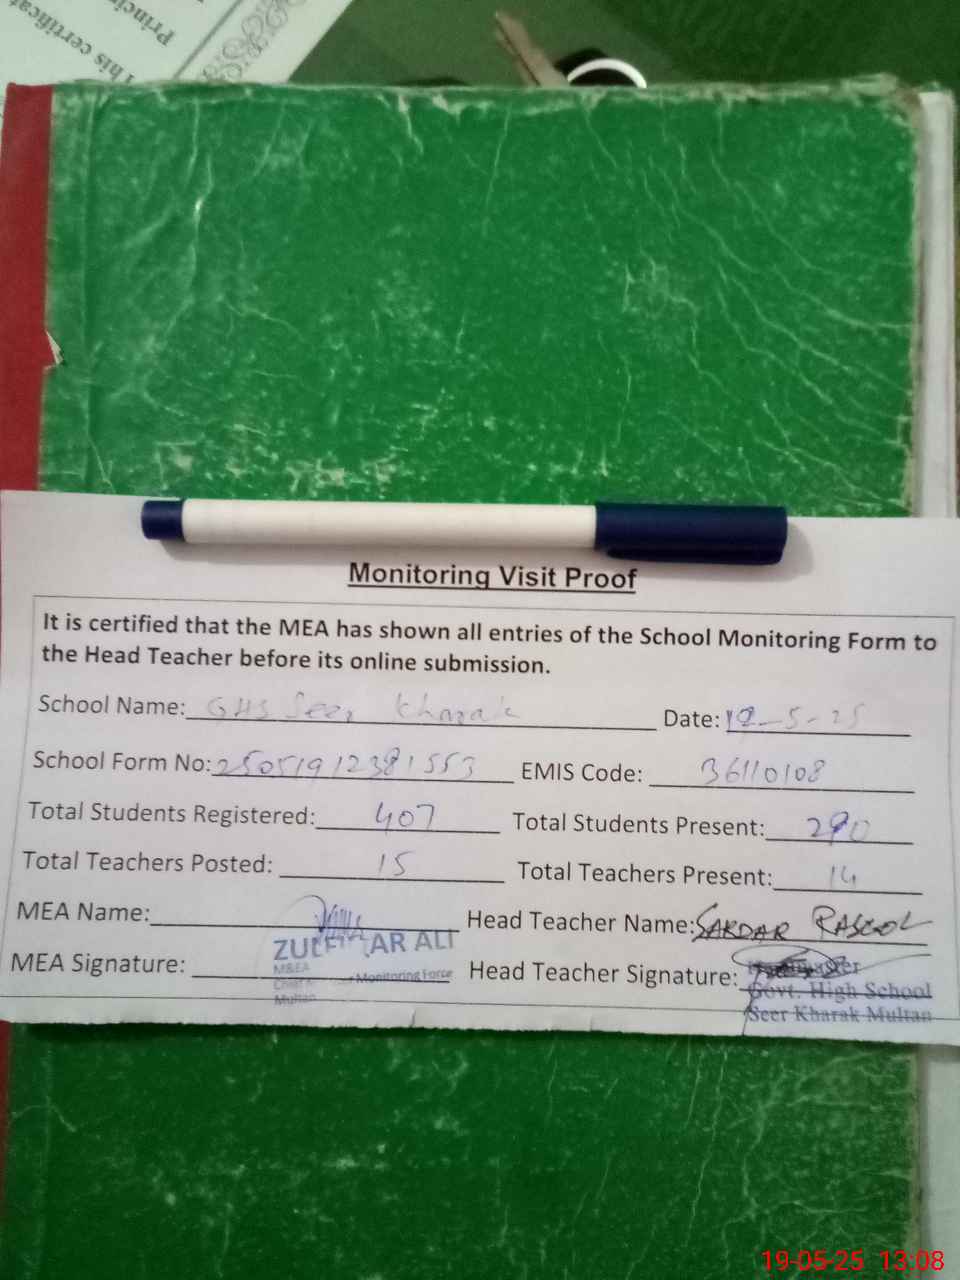 This certificat
Princi
Monitoring Visit Proof
It is certified that the MEA has shown all entries of the School Monitoring Form to
the Head Teacher before its online submission.
School Name: GHS Seer Kharak Date: 19-5-25
School Form No: 25051912381553 EMIS Code: 36110108
Total Students Registered: 407 Total Students Present: 290
Total Teachers Posted: 15 Total Teachers Present: 14
MEA Name: Head Teacher Name: SARDAR RASOOL
ZULFIQAR ALI
MEA Signature: Head Teacher Signature:
M&EA
Monitoring Force
Multan
Govt. High School
Seer Kharak Multan
19-05-25 13:08